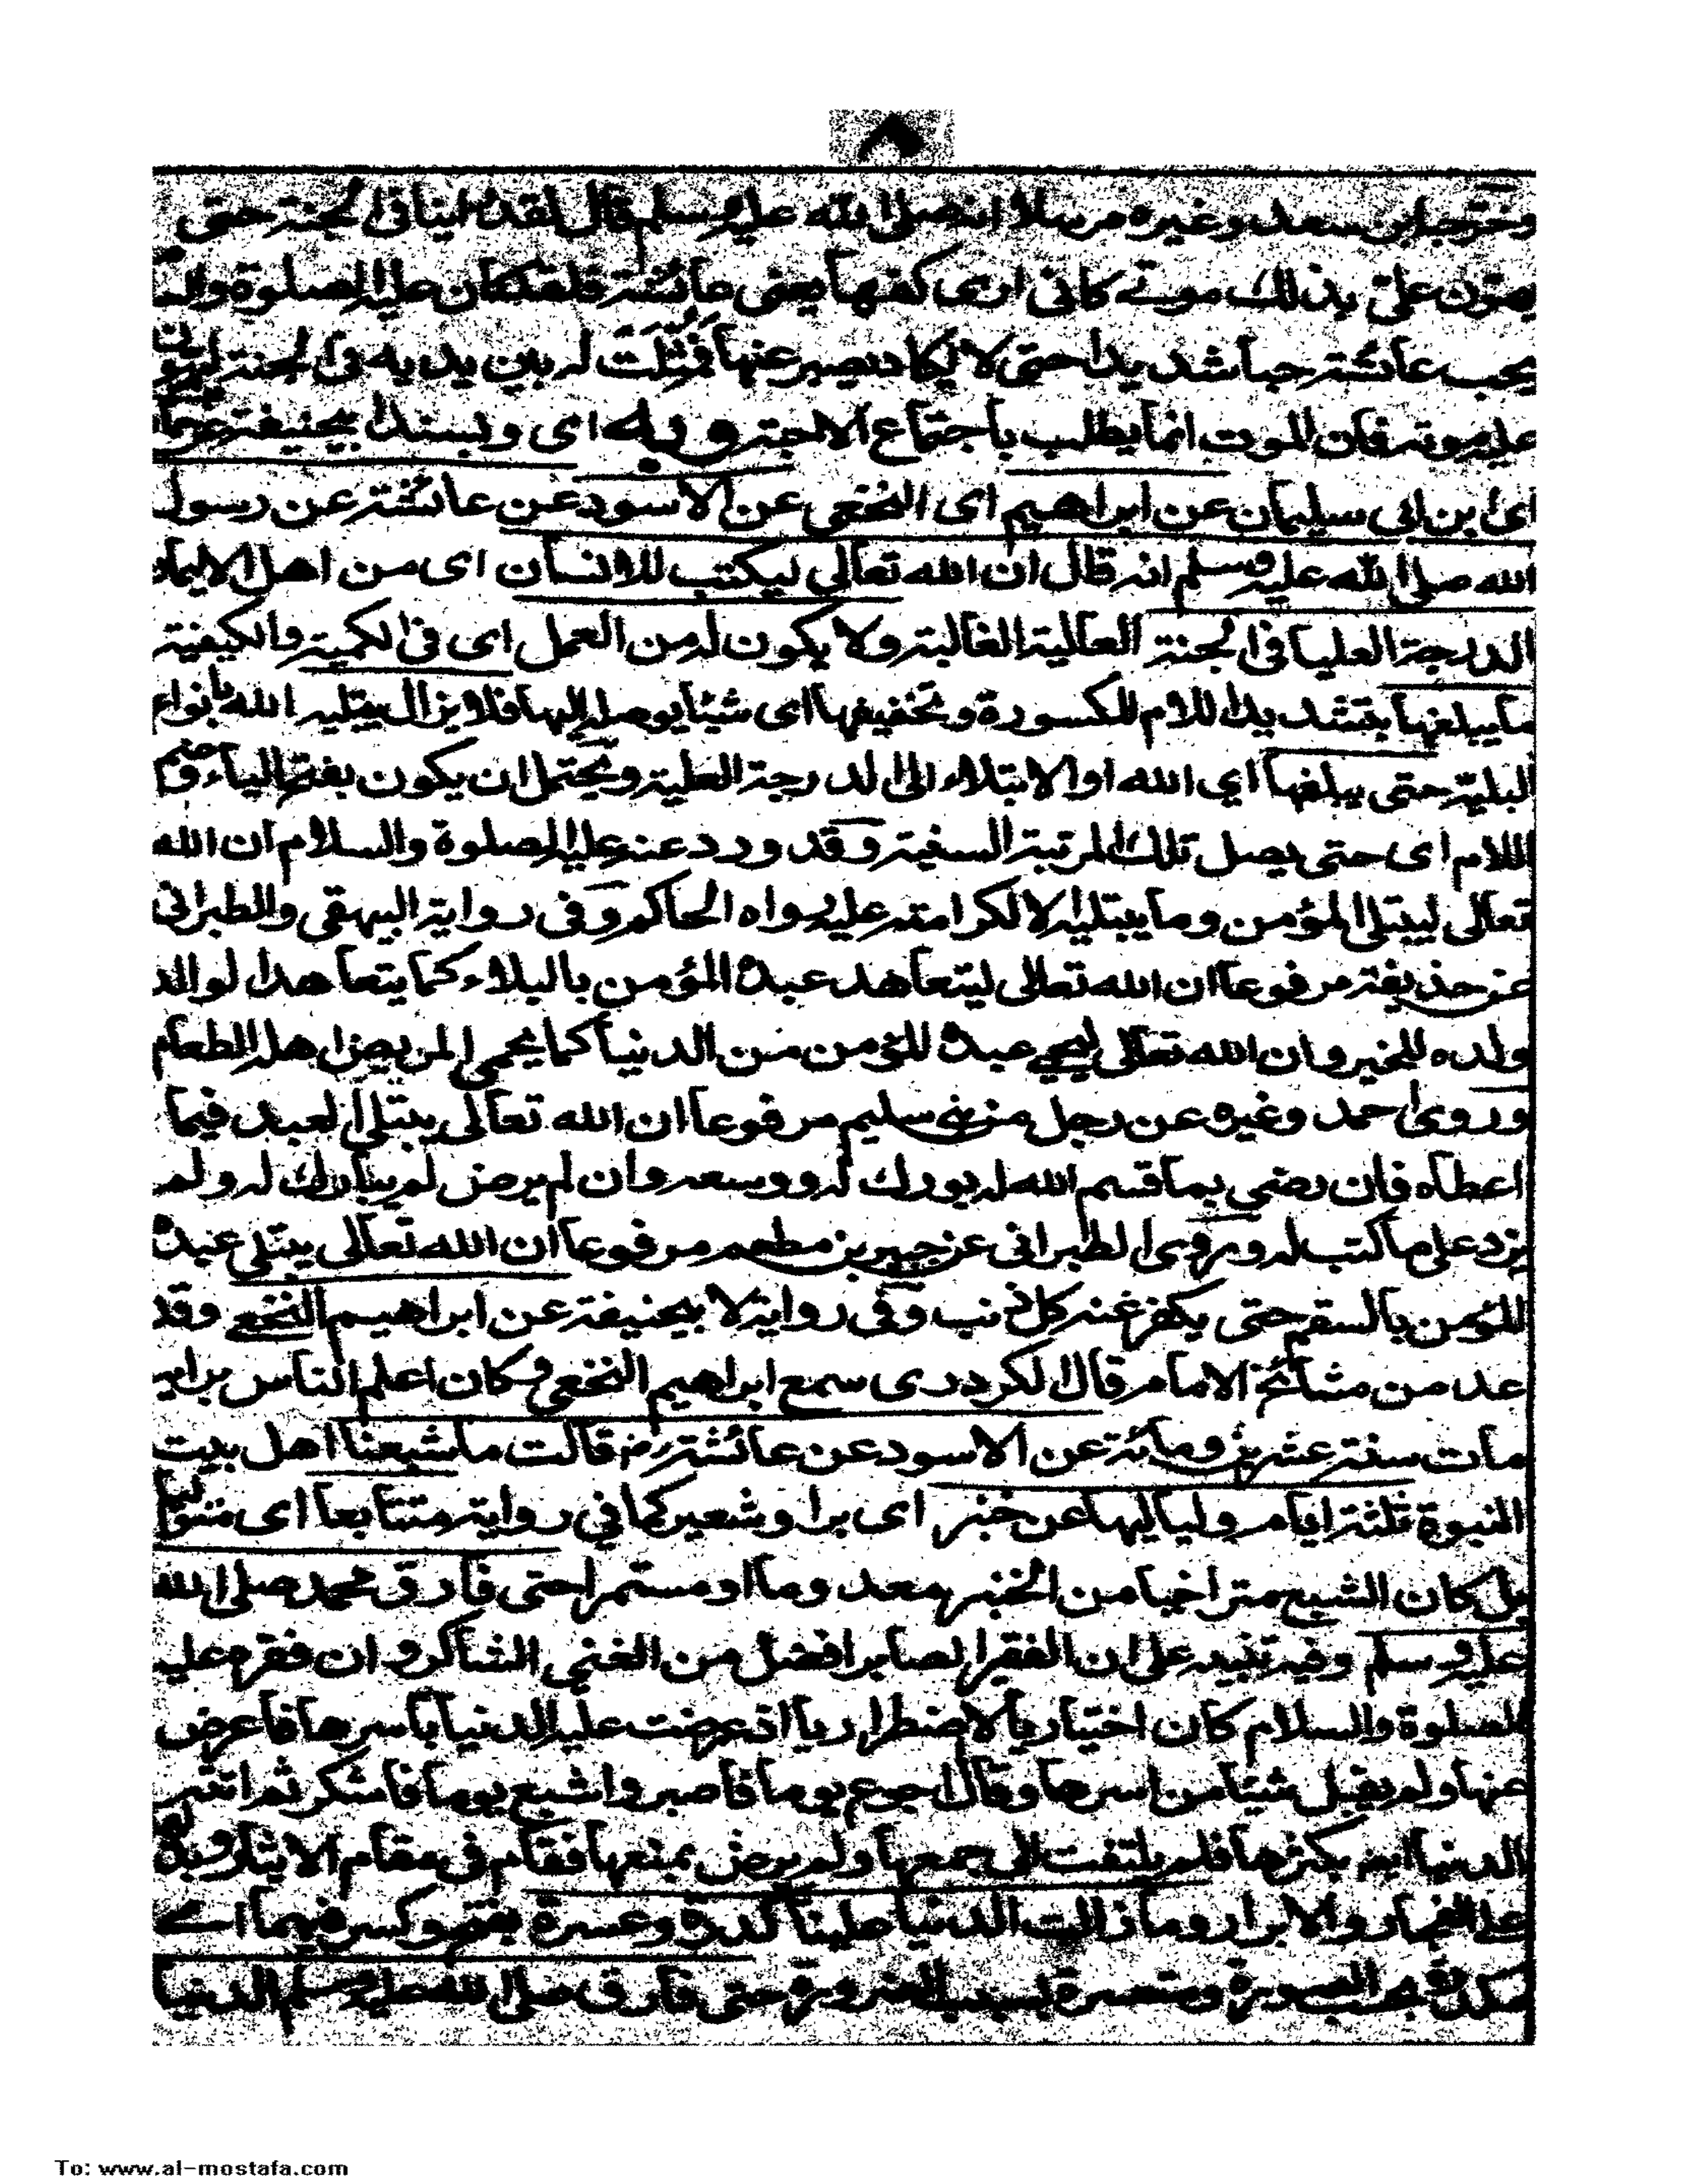 ٨
وخرجه ابن سعد وغيره مرسلا انه صلى الله عليه وسلم قال لقد رأيتها فى الجنة حتى
يهون على بذلك موتى كانى ارى كفيها يعنى عائشة فلقد كان عليه الصلوة والسلام
يحب عائشة حبا شديدا حتى لا يكاد يصبر عنها فمثلت له بين يديه فى الجنة ليهون
عليه موته فان الموت انما يطلب باجتماع الاحبة وبه اى وبسند ابيحنيفة عن حماد
اى ابن ابى سليمان عن ابراهيم اى النخعى عن الاسود عن عائشة عن رسول
الله صلى الله عليه وسلم انه قال ان الله تعالى ليكتب للانسان اى من اهل الايمان
الدرجة العليا فى الجنة العالية الغالبة ولا يكون له من العمل اى فى الكمية والكيفية
ما يبلغها بتشديد اللام المكسورة وتخفيفها اى شيئا يوصله اليها فلا يزال يبتليه الله بانواع
البلية حتى يبلغها اي الله او الابتلاء الى الدرجة العلية ويحتمل ان يكون بفتح الياء وضم
اللام اى حتى يصل تلك المرتبة السنية وقد ورد عنه عليه الصلوة والسلام ان الله
تعالى ليبتلى المؤمن وما يبتليه الا لكرامته عليه رواه الحاكم وفى رواية البيهقى والطبرانى
عن حذيفة مرفوعا ان الله تعالى ليتعاهد عبده المؤمن بالبلاء كما يتعاهد الوالد
ولده للخير وان الله تعالى ليحمي عبده المؤمن من الدنيا كما يحمى المريض اهله الطعام
وروى احمد وغيره عن رجل من بنى سليم مرفوعا ان الله تعالى يبتلى العبد فيما
اعطاه فان رضى بما قسم الله له بورك له ووسعه وان لم يرض لم يبارك له ولم
يزد على ما كتب له وروى الطبرانى عن جبير بن مطعم مرفوعا ان الله تعالى يبتلى عبده
المؤمن بالسقم حتى يكفر عنه كل ذنب وفى رواية لابيحنيفة عن ابراهيم النخعى وقد
عد من مشائخ الامام قال الكردرى سمع ابراهيم النخعى وكان اعلم الناس برايه
مات سنة عشرين ومائة عن الاسود عن عائشة رض قالت ما شبعنا اهل بيت
النبوة ثلثة ايام ولياليها عن خبز اى برا وشعير كما في رواية متتابعا اى متواليا
بل كان الشبع متراخيا من الخبز معدوما او مستمرا حتى فارق محمد صلى الله
عليه وسلم وفيه تنبيه على ان الفقير الصابر افضل من الغنى الشاكر وان فقره عليه
الصلوة والسلام كان اختياريا لا اضطراريا اذ عرضت عليه الدنيا باسرها فاعرض
عنها ولم يقبل شيئا من اسرها وقال اجوع يوما فاصبر واشبع يوما فاشكر ثم
الدنيا بكثرها فلم يلتفت الى جمعها ولم يرض بمنعها فقام فى مقام الايثار
على والابرار وما زالت الدنيا علينا كدرة وعسرة بفتح وكسر فيهما اے
مكدرة بحسب الصورة ومتعسرة بسبب الضرورة حتى فارق صلى الله عليه وسلم الدنيا
To: www.al-mostafa.com